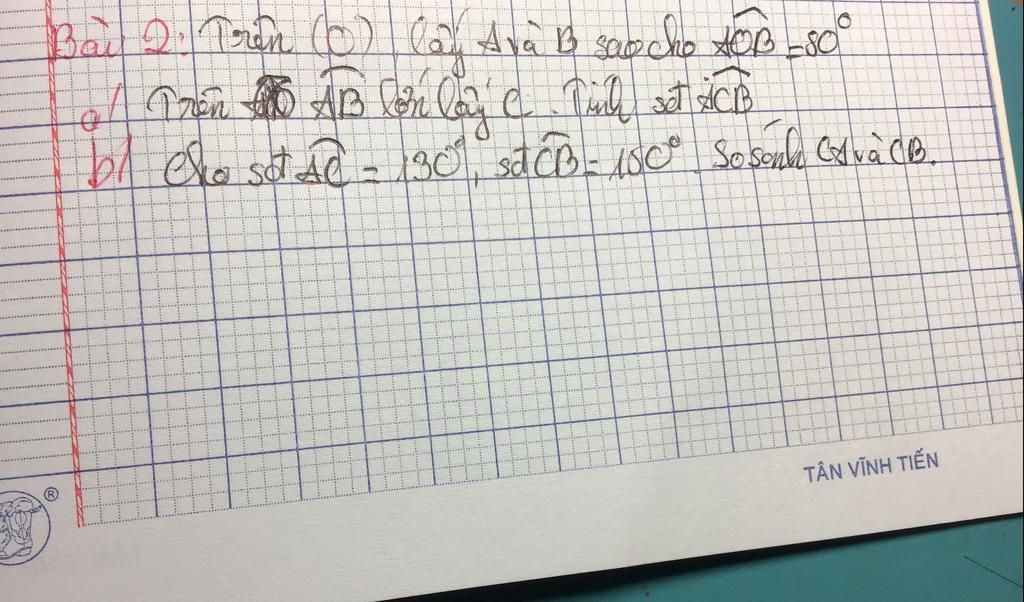 Bài 2: Trên (O) lấy A và B sao cho AOB = 80°
a/ Trên AB lớn lấy C. Tính sđ ACB
b/ Cho sđ AC = 130°, sđ CB = 150°. So sánh CA và CB.
TÂN VĨNH TIẾN
®